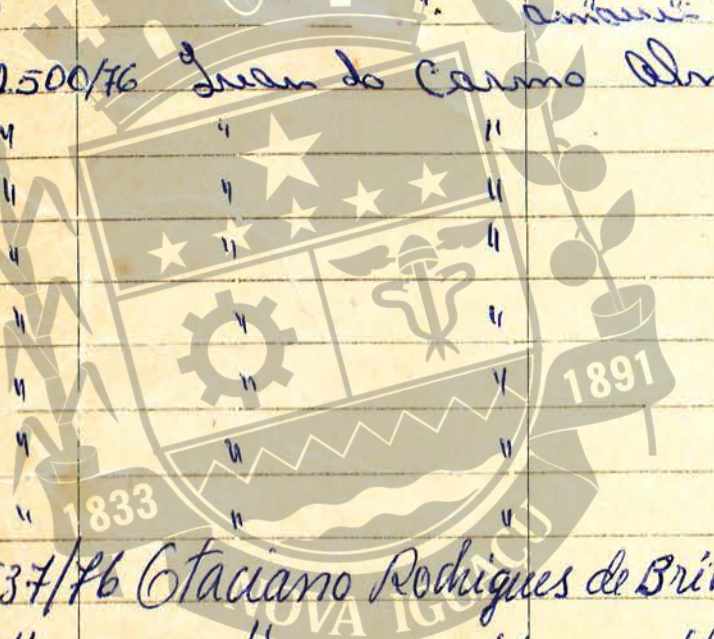 .500/76 Juan do Carmo
" " "
" " "
" " "
" " "
" " "
" " "
" " "
37/76 Otaciano Rodrigues de Bri
" "
1833
1891
NOVA IGUAÇU